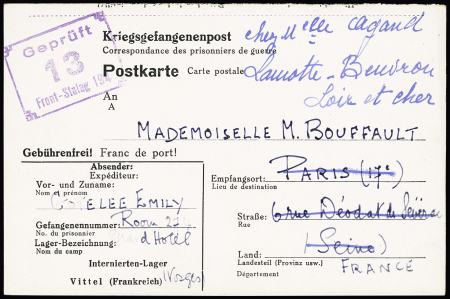 Geprüft
13
Front-Stalag 194
Kriegsgefangenenpost
Correspondance des prisonniers de guerre
Postkarte Carte postale
chez Melle
Lamotte-Beuvron
Loir et cher
An
A
MADEMOISELLE M. BOUFFAULT
Gebührenfrei! Franc de port!
Absender:
Expéditeur:
Vor- und Zuname:
Nom et prénom
EMILY
Gefangenennummer: Room
No. du prisonnier
Lager-Bezeichnung: d Hotel
Nom du camp
Internierten-Lager
Vittel (Frankreich) (Vosges)
Empfangsort: PARIS (17e)
Lieu de destination
Straße: 6 rue Déodat de
Rue
(Seine)
Land: FRANCE
Landesteil (Provinz usw.)
Département